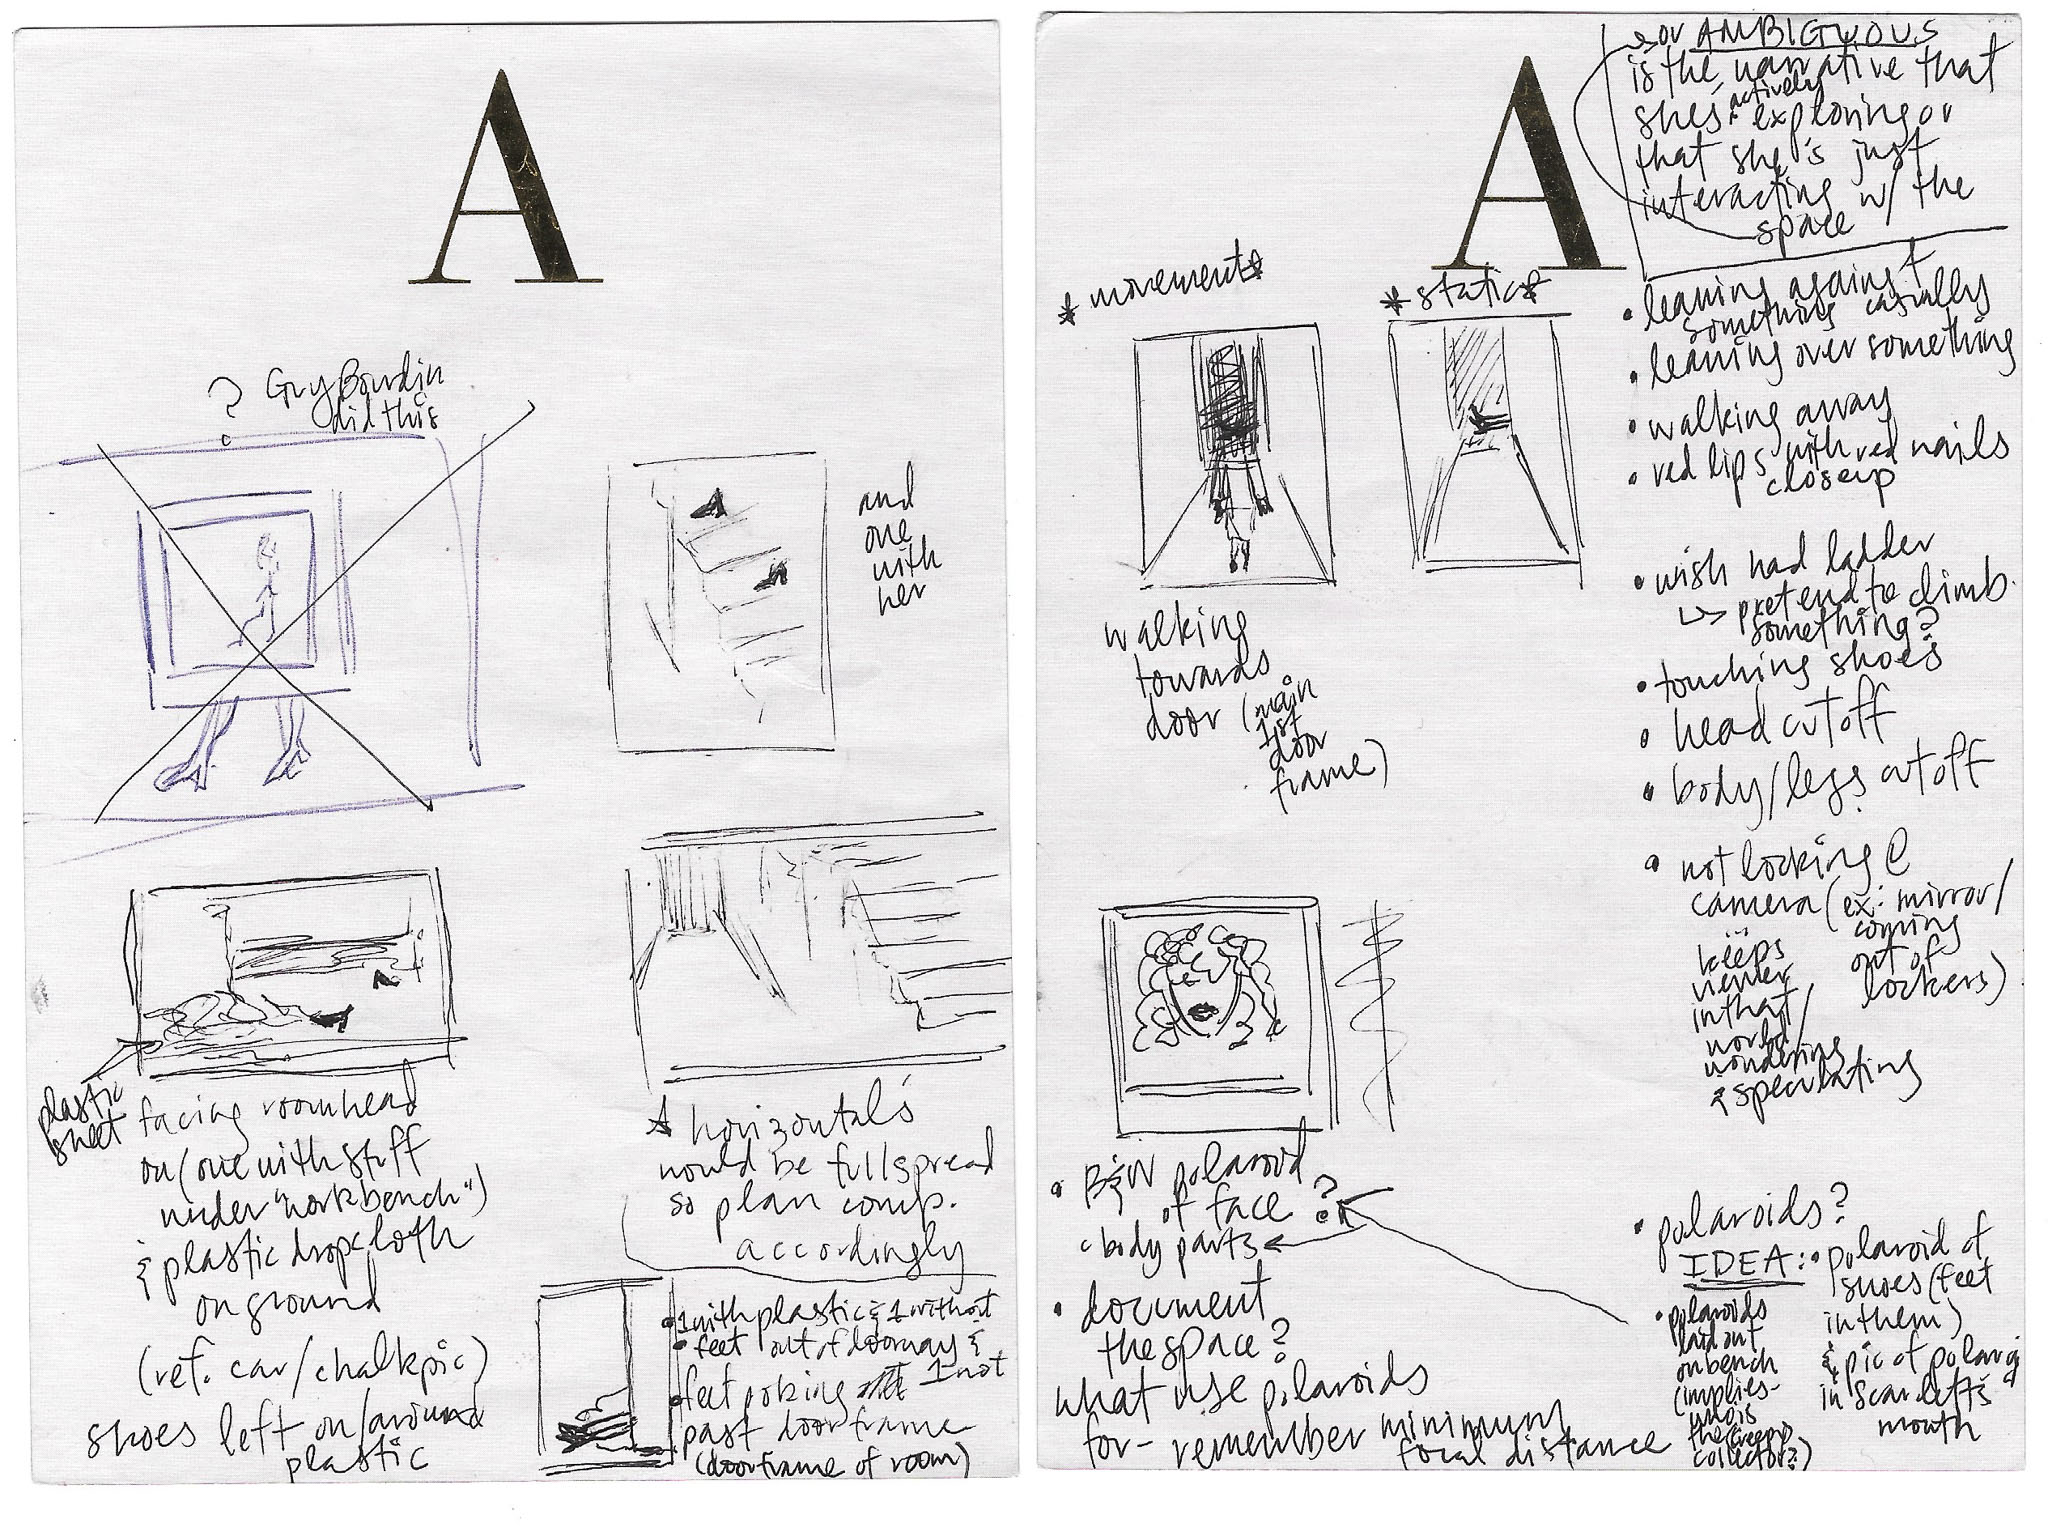 A
? Guy Bourdin
did this
and
one
with
her
plastic
sheet
facing room head
on (one with stuff
under "workbench")
& plastic dropcloth
on ground
(ref. car/chalk pic)
shoes left on/around
plastic
* horizontals
would be full spread
so plan comp.
accordingly
• 1 with plastic & 1 without
• feet out of doorway &
1 not
• feet poking
past door frame
(doorframe of room)
A
or AMBIGUOUS
is the narrative that
she's actively exploring or
that she's just
interacting w/ the
space
* movement *
* static *
walking
towards
door (main
1st
door
frame)
• leaning against
something casually
• leaning over something
• walking away
• red lips with red nails
closeup
• wish had ladder
↳ pretend to climb
something?
• touching shoes
• head cutoff
• body/legs cutoff
• not looking @
camera (ex: mirror/
coming
out of
lockers)
keeps
viewer
in that
world/
wondering
& speculating
• B&W polaroid
of face ?
body parts
• document
the space?
what use polaroids
for - remember minimum
focal distance
• polaroids?
IDEA: • polaroid of
shoes (feet
in them)
& pic of polaroid
in Scarlett's
mouth
• polaroids
laid out
on bench
(implies-
who is
the creepy
collector?)